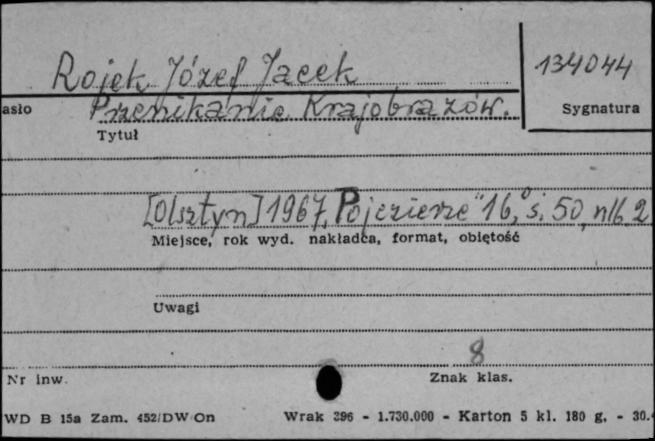 Rojek Józef Jacek
134044
asło
Przenikanie Krajobrazów.
Sygnatura
Tytuł
[Olsztyn] 1967, Pojezierze" 16,° s. 50, nlb. 2
Miejsce, rok wyd. nakładca, format, objętość
Uwagi
8
Nr inw.
Znak klas.
WD B 15a Zam. 452/DW/On
Wrak 396 - 1.730.000 - Karton 5 kl. 180 g. - 30.